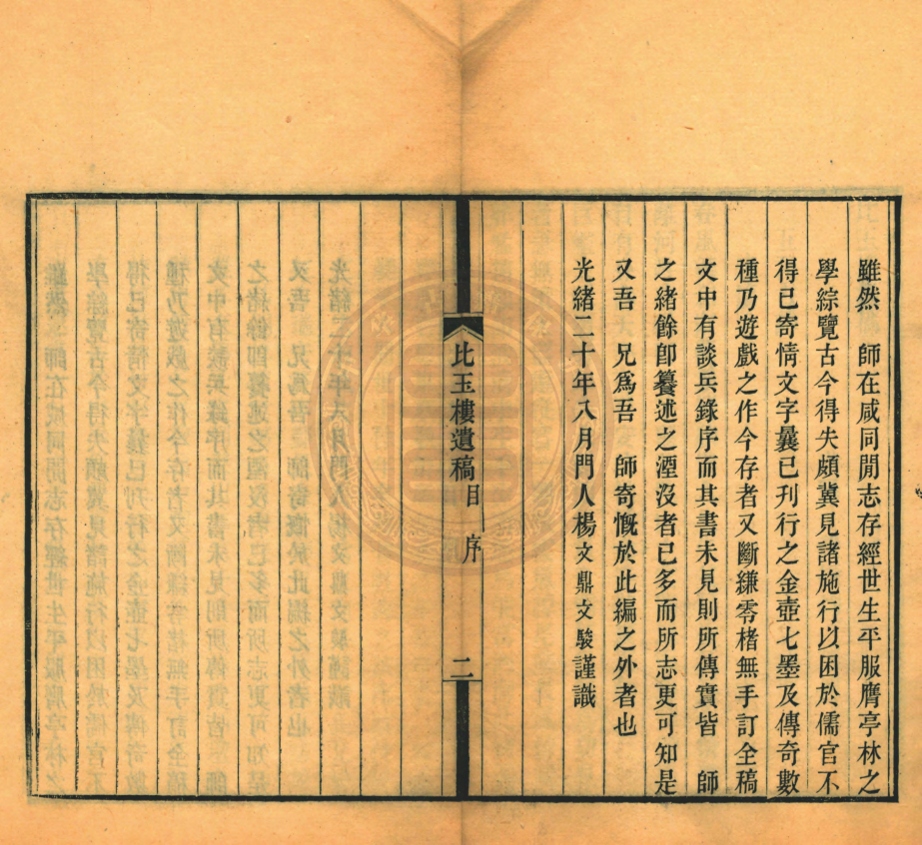 雖然　師在咸同閒志存經世生平服膺亭林之
學綜覽古今得失頗冀見諸施行以困於儒官不
得已寄情文字曩已刊行之金壺七墨及傳奇數
種乃遊戲之作今存者又斷縑零楮無手訂全稿
文中有談兵錄序而其書未見則所傳實皆　師
之緒餘卽纂述之湮沒者已多而所志更可知是
又吾　兄爲吾　師寄慨於此編之外者也
光緒二十年八月門人楊文鼎文駿謹識
比玉樓遺稿目　序　二